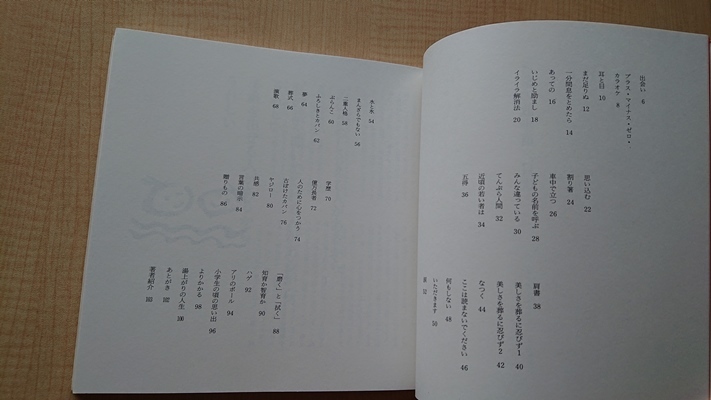 出会い 6
プラス・マイナス・ゼロ・
カラオケ 8
耳と目 10
まだ足りぬ 12
一分間息をとめたら 14
あっての 16
いじめと励まし 18
イライラ解消法 20
思い込む 22
割り箸 24
車中で立つ 26
子どもの名前を呼ぶ 28
みんな違っている 30
てんぷら人間 32
近頃の若い者は 34
五得 36
肩書 38
美しさを葬るに忍びず1 40
美しさを葬るに忍びず2 42
なつく 44
ここは読まないでください 46
何もしない 48
いただきます 50
52
水と氷 54
まんざらでもない 56
二重人格 58
ぶらんこ 60
ふろしきとカバン 62
夢 64
葬式 66
演歌 68
学歴 70
億万長者 72
人のために心をつかう 74
古ぼけたカバン 76
ヤジロー 80
共感 82
言葉の暗示 84
贈りもの 86
「磨く」と「拭く」 88
知育か智育か 90
ハゲ 92
アリのボール 94
小学生の頃の思い出 96
よりかかる 98
湯上がりの人生 100
あとがき 102
著者紹介 103